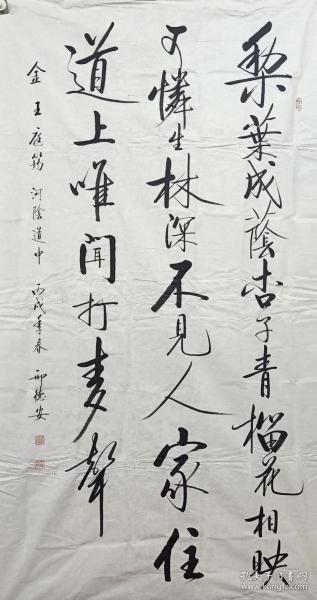 梨葉成蔭杏子青榴花相映
可憐生林深不見人家住
道上唯聞打麥聲
金王庭筠河陰道中 丙戌年春 邢德安
孔夫子旧书网